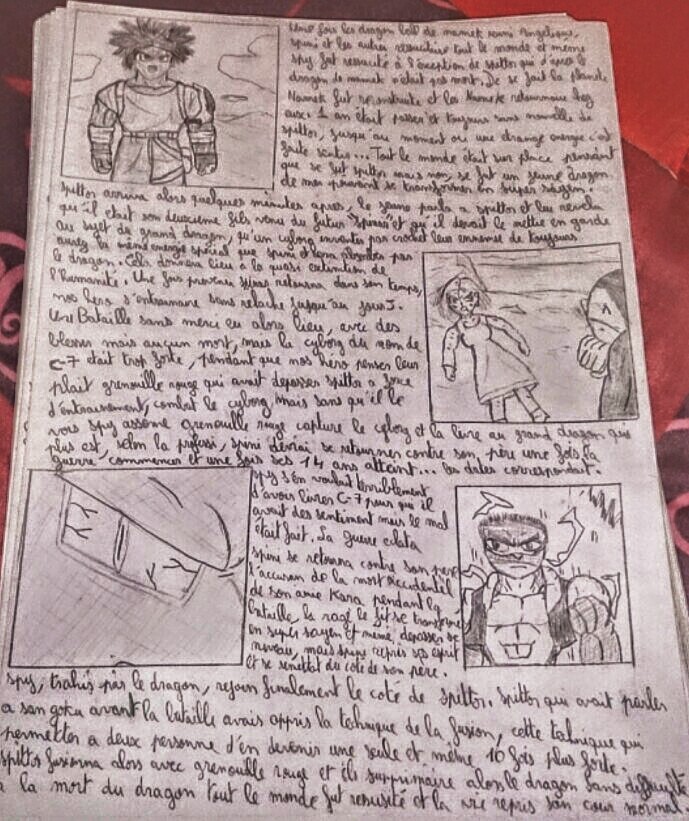 Une fois les dragon ball de namek reuni Angelique,
spini et les autres ressucitère tout le monde et même
spy fut ressucité à l'exception de spittor qui d'après le
dragon de namek n'était pas mort. De se fait la planete
Namek fut reconstruite et les Namek retournaire chez
eux 1 an était passer et toujours sans nouvelle de
spittor, jusqu'au moment ou une étrange energie c'est
faite sentir... Tout le monde était sur place pensant
que se fut spittor mais non, se fut un jeune dragon
de mer pouvant se transformer en super sayen.
spittor arriva alors quelques minutes après, le jeune parla a spittor et leu revela
qu'il était son deuxième fils venu du futur "spiros" et qu'il devait le mettre en garde
au sujet du grand dragon, qu'un cyborg inventer par crochet leur ennemie de toujours
aurez la même energie spécial que spini et sera absorber par
le dragon. Cela donnera lieu a la quasi extinction de
l'humanité. Une fois prevenu spiros retourna dans son temps,
nos héro s'entrainaire sans relache jusqu'au jour J.
Une Bataille sans merci eu alors lieu, avec des
blesser mais aucun mort, mais le cyborg du nom de
C-7 était trop forte, pendant que nos héro penser leur
plait grenouille rouge qui avait depasser spittor a force
d'entrainement, combat le cyborg, mais sans qu'il le
vois spy assome grenouille rouge capture le cyborg et la livre au grand dragon qui
plus est, selon la profesi, spini devrai se retourner contre son père une fois la
guerre commencer et une fois ses 14 ans atteint... les dates correspondait.
spy s'en voulait terriblement
d'avoir livrer C-7 pour qui il
avait des sentiment mais le mal
était fait. La guerre éclata
spini se retourna contre son père
l'accusan de la mort accidentel
de son amie Kara pendant la
bataille, la rage le fit se transformer
en super sayen et même depasser se
niveau, mais spini repris ses esprit
et se remettat du coté de son père.
spy, trahis par le dragon, rejoin finalement le coté de spittor. spittor qui avait parler
a san goku avant la bataille avais appris la téchnique de la fusion, cette téhnique qui
permetter a deux personne d'en devenir une seule et même 10 fois plus forte.
spittor fusionna alors avec grenouille rouge et ils supprimaire alors le dragon sans difficulté
a la mort du dragon tout le monde fut resusité et la vie repris son cour normal.